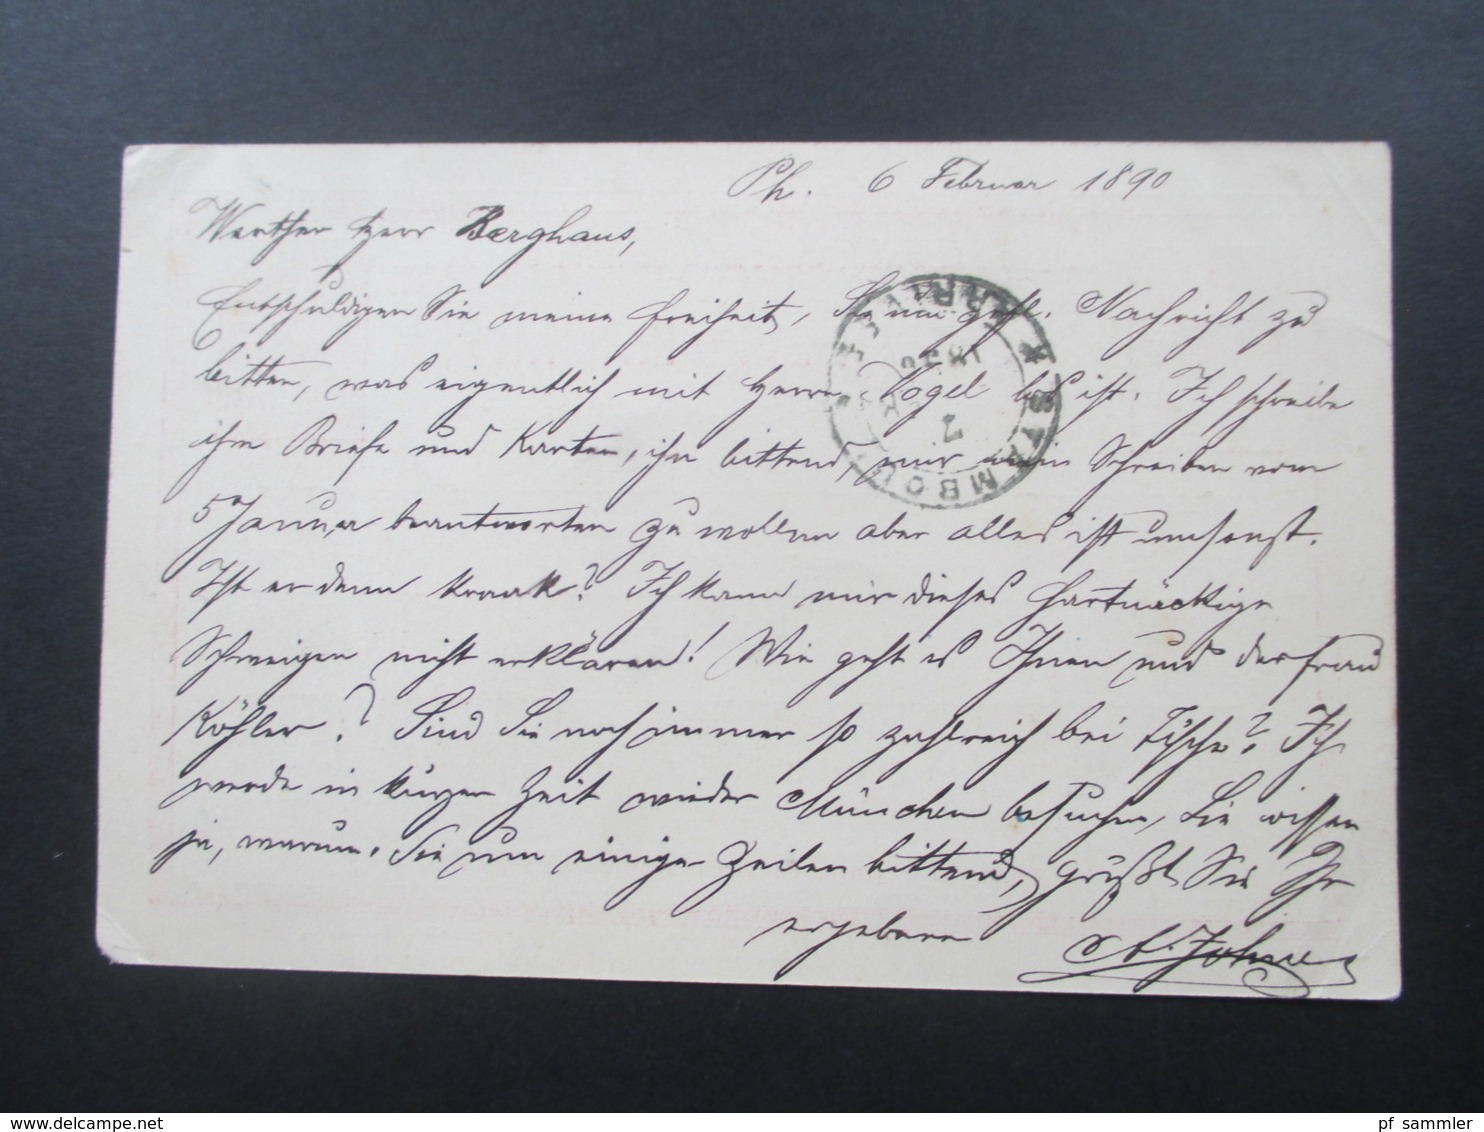 Ph. 6 Februar 1890
Werther Herr Berghaus,
Entschuldigen Sie meine Freiheit, Sie um gefl. Nachricht zu
bitten, was eigentlich mit Herrn Vogel los ist. Ich schreibe
ihm Briefe und Karten, ihn bittend, mir mein Schreiben vom
5 Januar beantworten zu wollen aber alles ist umsonst.
Ist er denn krank? Ich kann mir dieses hartnäckige
Schweigen nicht erklären! Wie geht es Ihnen und der Frau
Köhler? Sind Sie noch immer so zahlreich bei Tische? Ich
werde in kurzer Zeit wieder München besuchen, Sie wissen
ja, warum. Sie um einige Zeilen bittend, grüßt Sie Ihr
ergebener
STAMBOUL
ARRIVÉE
7
pf_sammler